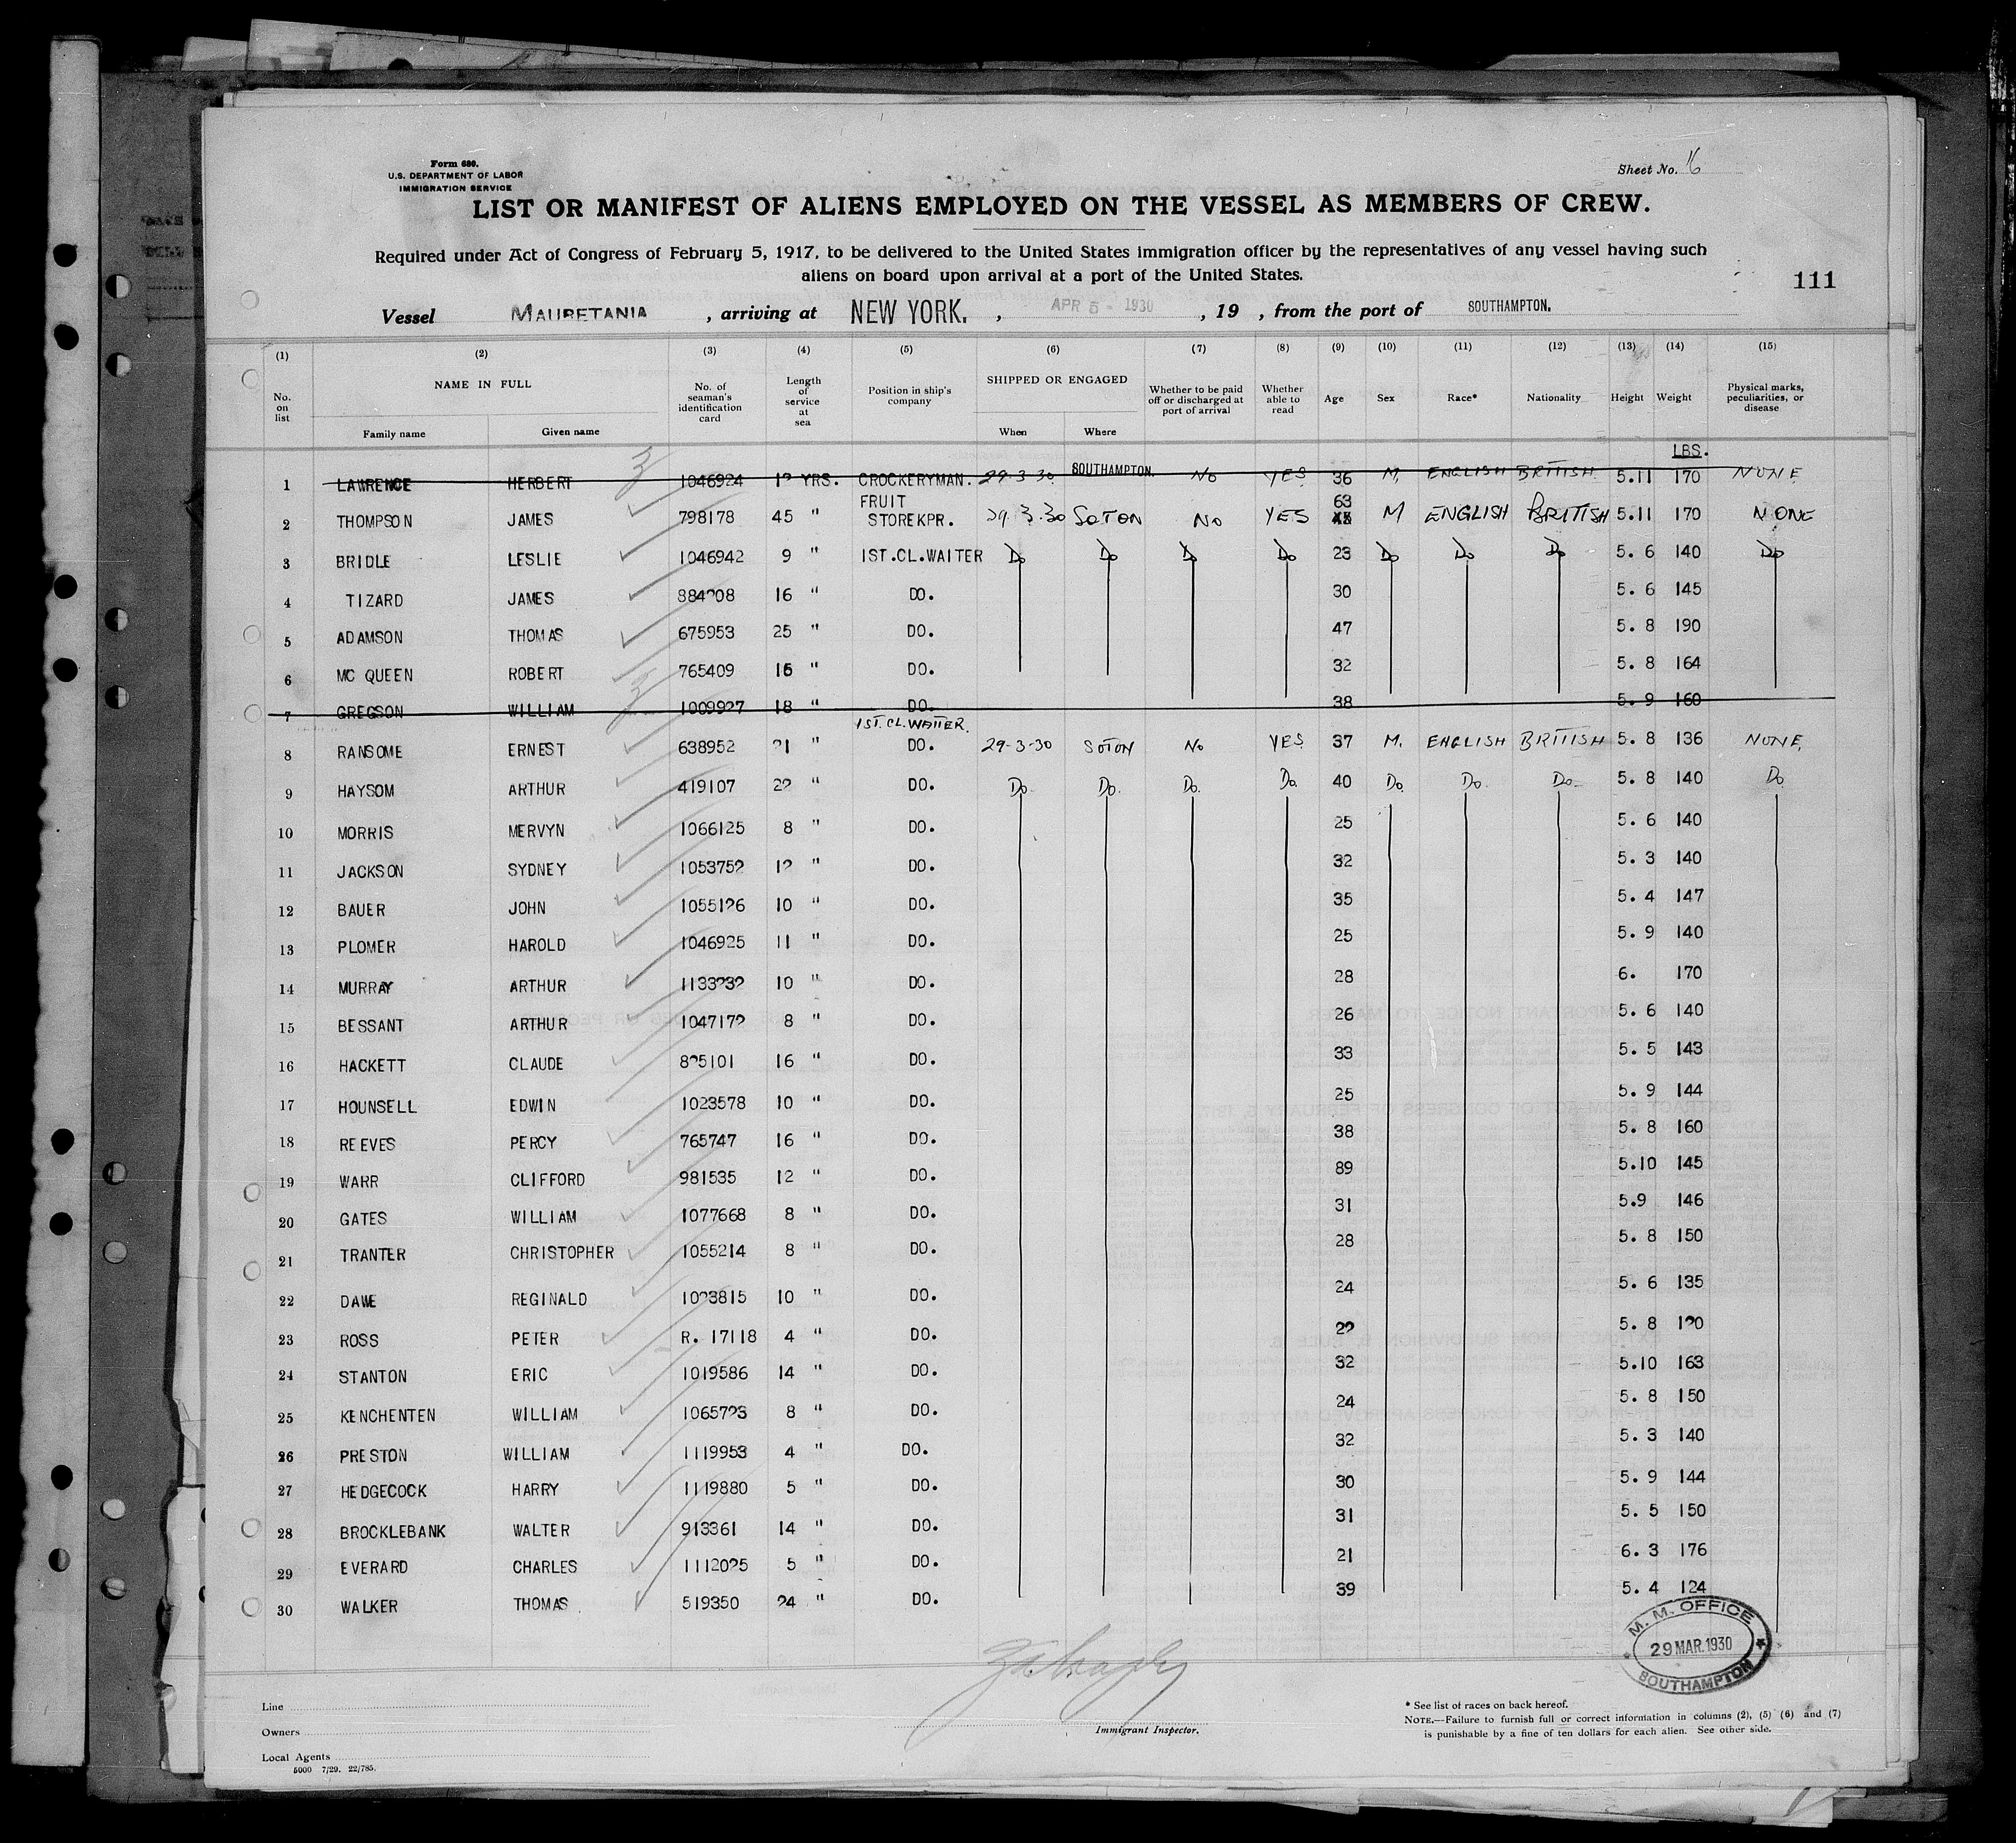 Form 680.
U.S. DEPARTMENT OF LABOR
IMMIGRATION SERVICE
Sheet No. 16
LIST OR MANIFEST OF ALIENS EMPLOYED ON THE VESSEL AS MEMBERS OF CREW.
Required under Act of Congress of February 5, 1917, to be delivered to the United States immigration officer by the representatives of any vessel having such
aliens on board upon arrival at a port of the United States.
111
Vessel MAURETANIA, arriving at NEW YORK., APR 5 - 1930, 19 , from the port of SOUTHAMPTON.
(1) (2) (3) (4) (5) (6) (7) (8) (9) (10) (11) (12) (13) (14) (15)
No. on list NAME IN FULL No. of seaman's identification card Length of service at sea Position in ship's company SHIPPED OR ENGAGED Whether to be paid off or discharged at port of arrival Whether able to read Age Sex Race* Nationality Height Weight Physical marks, peculiarities, or disease
Family name Given name When Where
LBS.
1 LAWRENCE HERBERT 1046924 12 YRS. CROCKERYMAN. 29-3-30 SOUTHAMPTON. No YES 36 M. ENGLISH BRITISH 5.11 170 NONE
2 THOMPSON JAMES 798178 45 " FRUIT STOREKPR. 29.3.30 SOTON No YES 63 M ENGLISH BRITISH 5.11 170 NONE
3 BRIDLE LESLIE 1046942 9 " 1ST.CL.WAITER Do Do Do Do 23 Do Do Do 5. 6 140 Do
4 TIZARD JAMES 884208 16 " DO. 30 5. 6 145
5 ADAMSON THOMAS 675953 25 " DO. 47 5. 8 190
6 MC QUEEN ROBERT 765409 16 " DO. 32 5. 8 164
7 GREGSON WILLIAM 1009927 18 " DO. 38 5. 9 160
1ST.CL.WAITER.
8 RANSOME ERNEST 638952 21 " DO. 29-3-30 SOTON No YES 37 M. ENGLISH BRITISH 5. 8 136 NONE.
9 HAYSOM ARTHUR 419107 22 " DO. Do. Do. Do. Do. 40 Do. Do. Do. 5. 8 140 Do.
10 MORRIS MERVYN 1066125 8 " DO. 25 5. 6 140
11 JACKSON SYDNEY 1053752 12 " DO. 32 5. 3 140
12 BAUER JOHN 1055126 10 " DO. 35 5. 4 147
13 PLOMER HAROLD 1046925 11 " DO. 25 5. 9 140
14 MURRAY ARTHUR 1133232 10 " DO. 28 6. 170
15 BESSANT ARTHUR 1047172 8 " DO. 26 5. 6 140
16 HACKETT CLAUDE 825101 16 " DO. 33 5. 5 143
17 HOUNSELL EDWIN 1023578 10 " DO. 25 5. 9 144
18 REEVES PERCY 765747 16 " DO. 38 5. 8 160
19 WARR CLIFFORD 981535 12 " DO. 89 5.10 145
20 GATES WILLIAM 1077668 8 " DO. 31 5.9 146
21 TRANTER CHRISTOPHER 1055214 8 " DO. 28 5. 8 150
22 DAWE REGINALD 1023815 10 " DO. 24 5. 6 135
23 ROSS PETER R. 17118 4 " DO. 22 5. 8 120
24 STANTON ERIC 1019586 14 " DO. 32 5.10 163
25 KENCHENTEN WILLIAM 1065723 8 " DO. 24 5. 8 150
26 PRESTON WILLIAM 1119953 4 " DO. 32 5. 3 140
27 HEDGECOCK HARRY 1119880 5 " DO. 30 5. 9 144
28 BROCKLEBANK WALTER 913361 14 " DO. 31 5. 5 150
29 EVERARD CHARLES 1112025 5 " DO. 21 6. 3 176
30 WALKER THOMAS 519350 24 " DO. 39 5. 4 124
M. M. OFFICE
29 MAR. 1930
SOUTHAMPTON
Line
Owners
Local Agents
5000 7/29. 22/785.
Immigrant Inspector.
* See list of races on back hereof.
NOTE.—Failure to furnish full or correct information in columns (2), (5) (6) and (7)
is punishable by a fine of ten dollars for each alien. See other side.